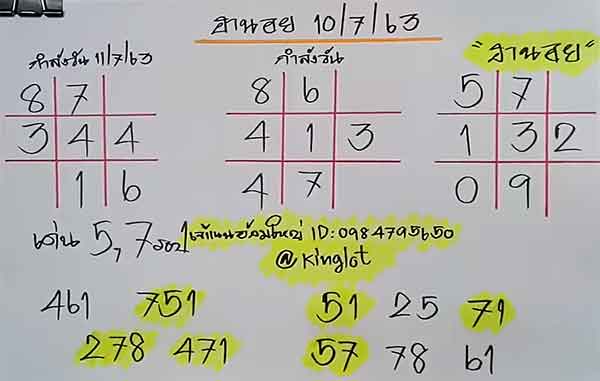 ฮานอย 10/7/63
กำลังวัน 11/7/63
กำลังวัน
"ฮานอย"
8 7
3 4 4
1 6
8 6
4 1 3
4 7
5 7
1 3 2
0 9
เด่น 5,7 รอง1
ID:0984795650
@Kinglot
461 751
278 471
51 25 71
57 78 61